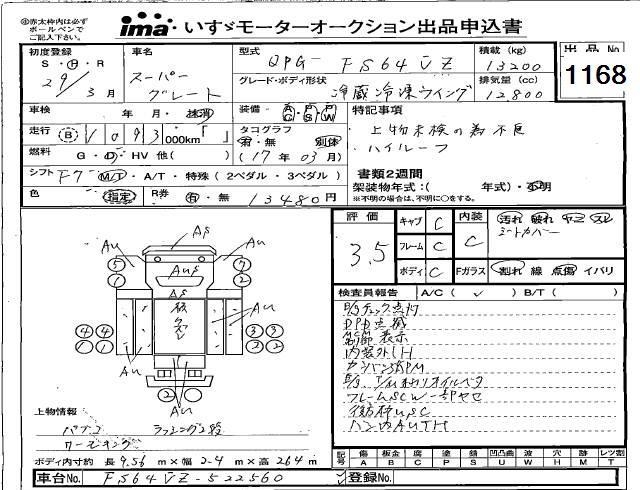 ㊟赤太枠内は必ず
ボールペンで
ご記入下さい。
ima いすゞモーターオークション出品申込書
出品No
1168
初度登録
S・H・R
29年3月
車名
スーパーグレート
型式
QPG-FS64VZ
積載(kg)
13200
グレード・ボディ形状
冷蔵冷凍ウイング
排気量(cc)
12800
車検
年・月・抹消
装備
特記事項
上物未検の為不良
ハイルーフ
走行
1093,000km「 」
タコグラフ
有・無 別体
(17年03月)
燃料
G・D・HV 他( )
書類2週間
架装物年式:( 年式)・不明
※不明の場合は、不明に○をする。
シフト
F7 M/T・A/T・特殊(2ペダル・3ペダル)
色
指定
R券
有・無
13480円
評価
3.5
キャブ C
フレーム C
ボディ C
内装
C
汚れ 破れ ヤニ スレ
シートカバー
Fガラス
割れ 線 点傷 イバリ
検査員報告 A/C( ✓ ) B/T( )
E/Sチェック点灯
DPD点滅
表示
内装外しH
フレームSCW一部ヤセ
AS
AU
AU
AUS
AS
板
AU
AU
AU
AU
⑤ ① ⑦ ②
④ ④ ③ ③
① ① ② ②
②
上物情報
パブコ ラッシング2段
ワーズキング
ボディ内寸約 長9.56m×幅2.4m×高264m
記号 傷A 板金B 腐C 塗P 錆S 凹凸曲U 波W 穴H 跡M レツ割T
車台No.
FS64VZ-522560
登録No.